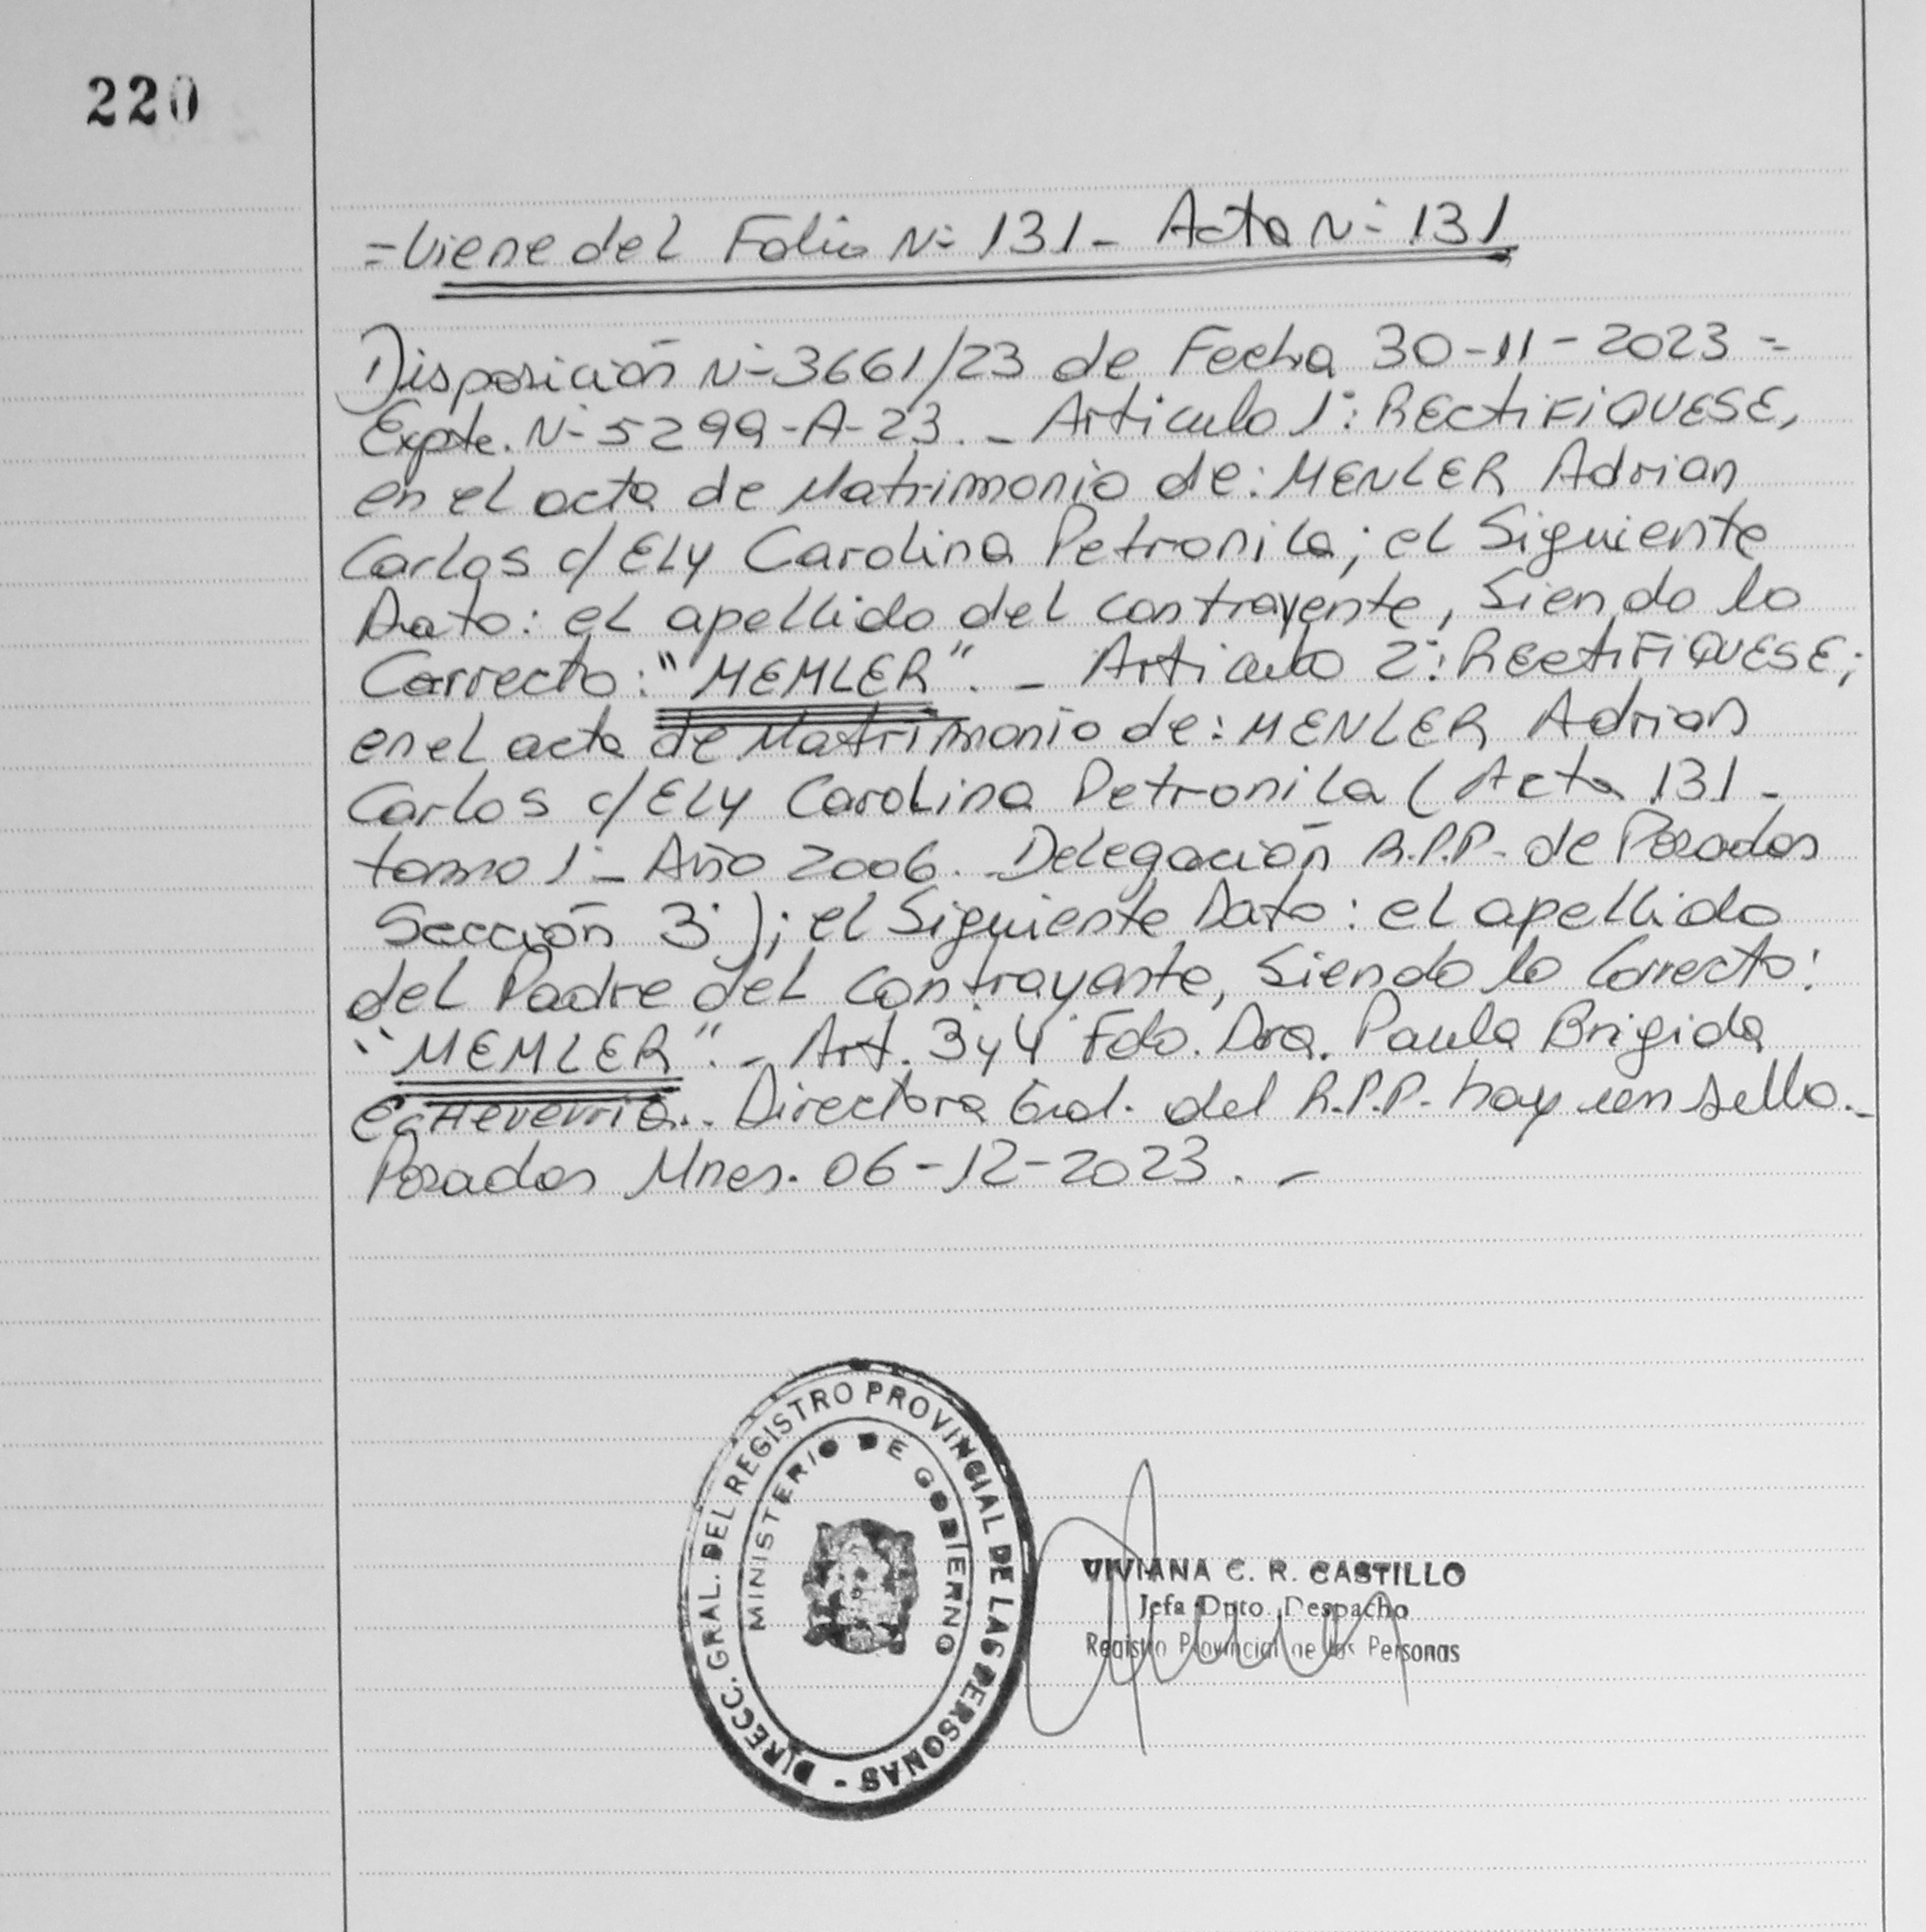 220
= Viene del Folio Nº 131 - Acta Nº 131
Disposición Nº 3661/23 de Fecha 30-11-2023 =
Expte. Nº 5299-A-23. _ Articulo 1º: RECTIFIQUESE,
en el acta de Matrimonio de: MENLER Adrian
Carlos c/ ELY Carolina Petronila; el Siguiente
Dato: el apellido del contrayente, Siendo lo
Correcto: "MEMLER". _ Articulo 2º: RECTIFIQUESE;
en el acta de Matrimonio de: MENLER Adrian
Carlos c/ ELY Carolina Petronila (Acta 131 -
tomo 1º _ Año 2006. Delegación R.P.P. de Posadas
Sección 3º); el Siguiente Dato: el apellido
del Padre del Contrayente, Siendo lo Correcto:
"MEMLER". _ Art. 3 y 4 Fdo. Dra. Paula Brigida
Echeverria.. Directora Gral. del R.P.P. hay un sello._
Posadas Mnes. 06-12-2023. _
DIRECC. GRAL. DEL REGISTRO PROVINCIAL DE LAS PERSONAS -
MINISTERIO DE GOBIERNO
VIVIANA C. R. CASTILLO
Jefa Dpto. Despacho
Registro Provincial de las Personas